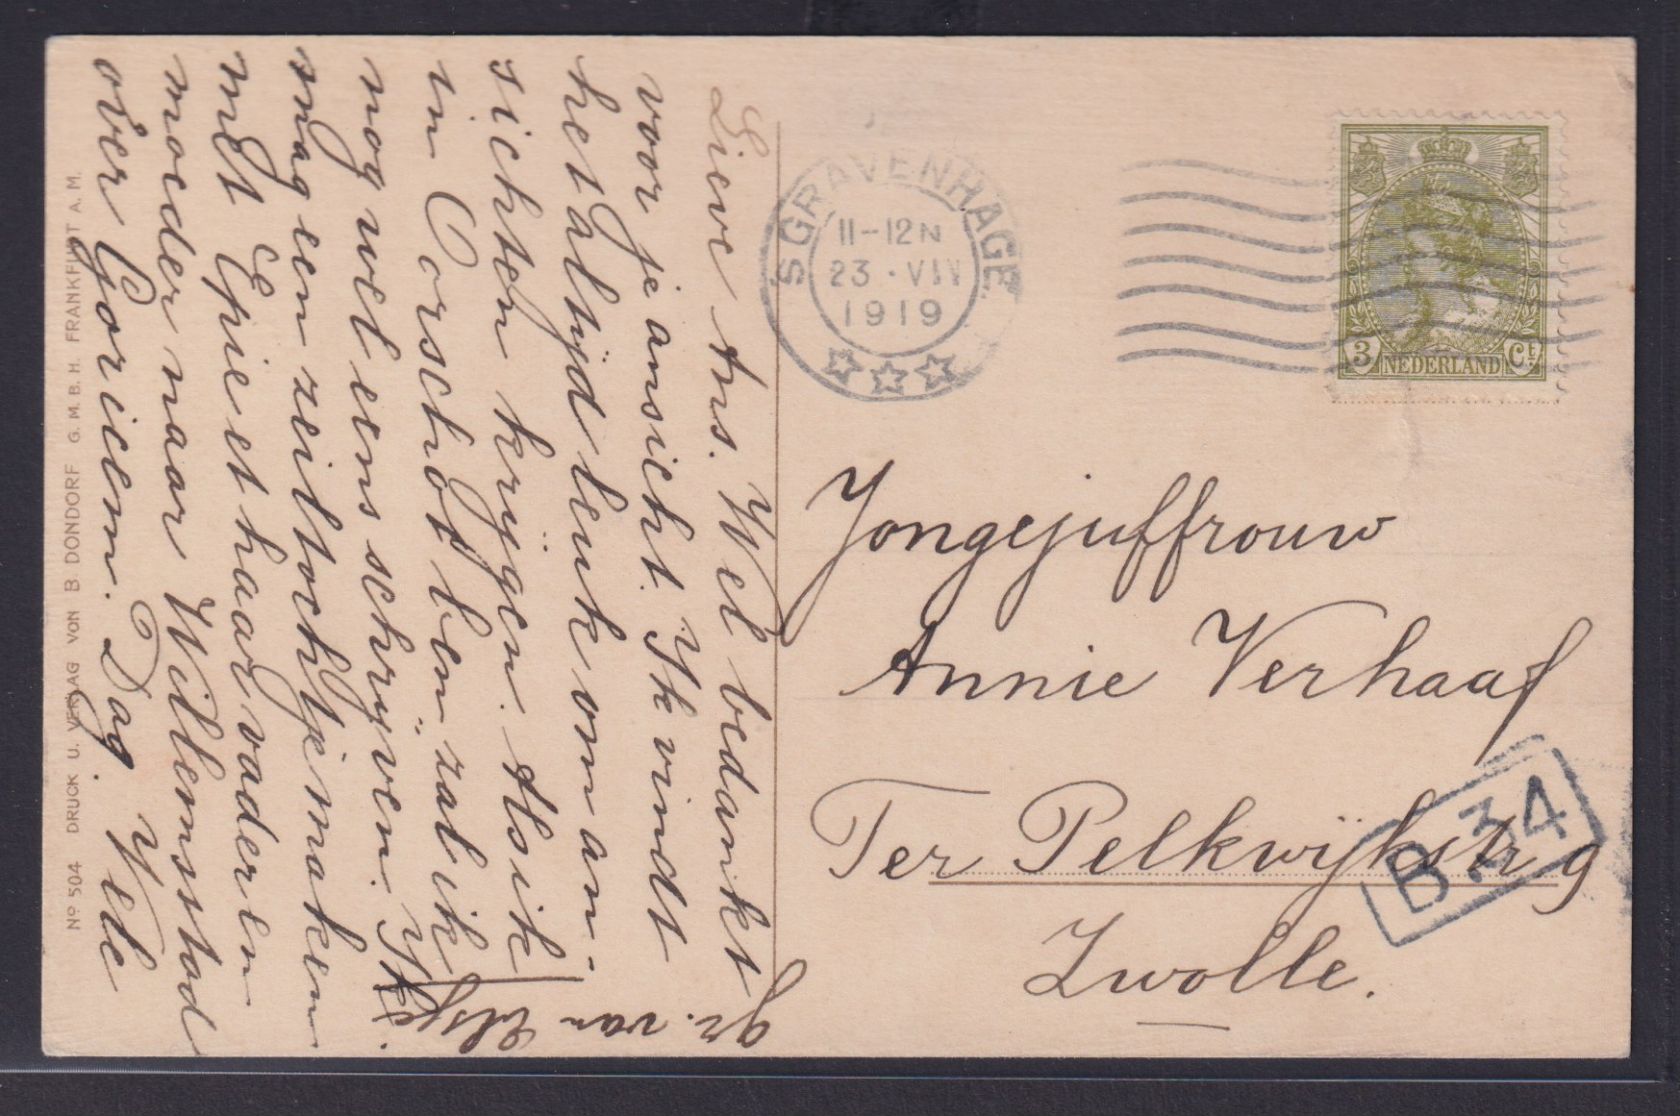 Lieve Ans. Wel bedankt
voor je ansicht. Ik vindt
het altijd leuk om an-
sichten krijgen. Als ik
in Oorschot ben, zal ik
nog wel eens schrijven. Ik
mag een zeiltochtje maken
met Epie et haar vader en
moeder naar Willemstad
over Goricem. Dag. Vele
gr. van Elsje.
'S GRAVENHAGE
11-12 N
23 · VII
1919
3 NEDERLAND Ct
Jongejuffrouw
Annie Verhaaf
Ter Pelkwijkstr 9
Zwolle.
B.34
Nº 504 DRUCK U. VERLAG VON B. DONDORF G. M. B. H. FRANKFURT A. M.